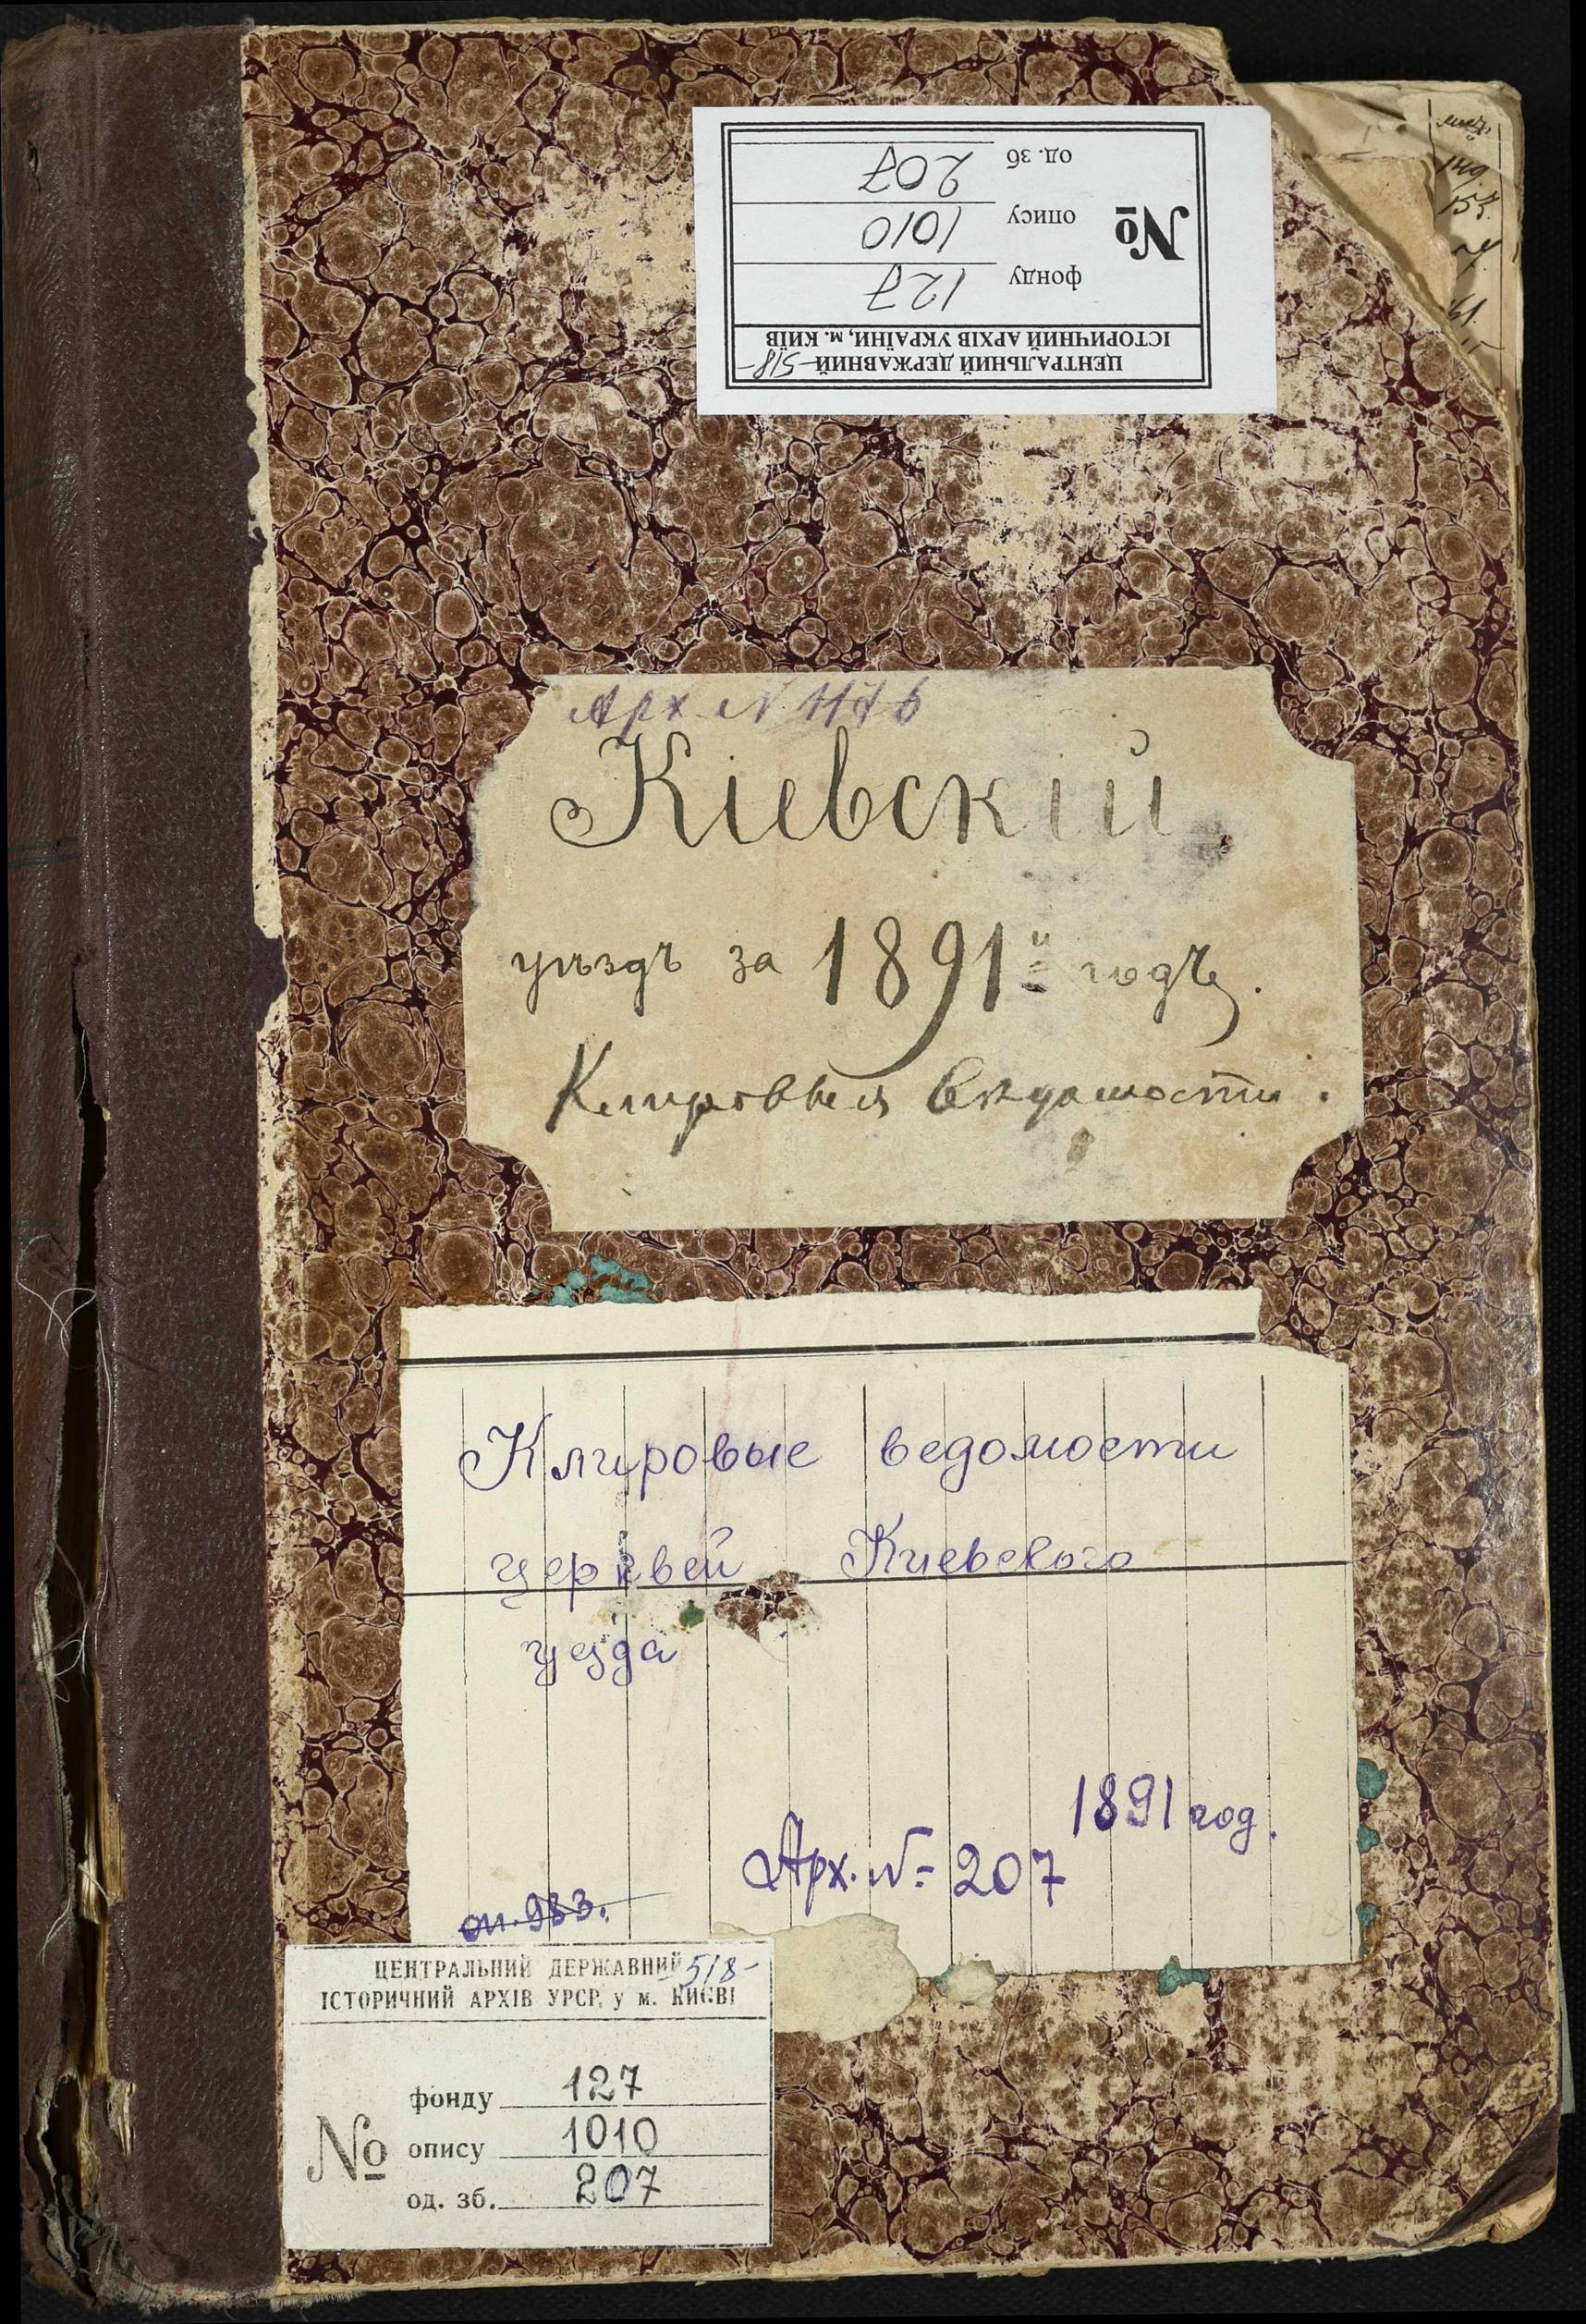 ЦЕНТРАЛЬНИЙ ДЕРЖАВНИЙ -518-
ІСТОРИЧНИЙ АРХІВ УКРАЇНИ, м. КИЇВ
№
фонду 127
опису 1010
од. зб 207
149.
Арх. N
Кіевскій
уѣздъ за 1891й годъ.
Клировыя вѣдомости.
Клировые ведомости
церквей Киевского
уезда
1891 год.
Арх. № 207
оп. 983.
ЦЕНТРАЛЬНИЙ ДЕРЖАВНИЙ 518-
ІСТОРИЧНИЙ АРХІВ УРСР, у м. КИЄВІ
№
фонду 127
опису 1010
од. зб. 207